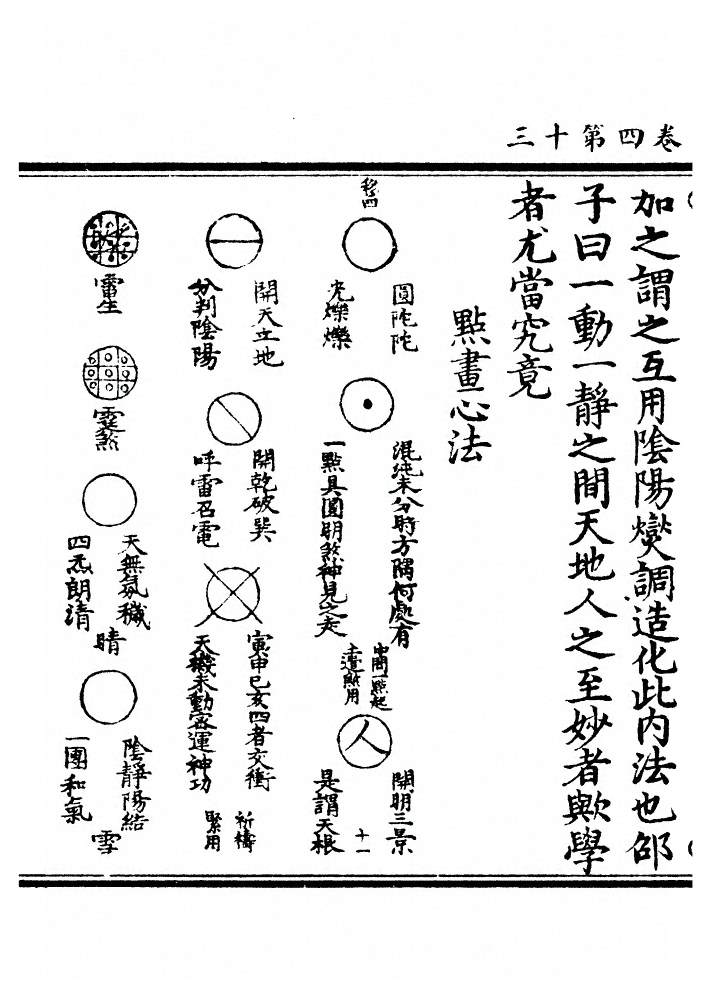 卷四第十三
加之謂之互用陰陽燮調造化此内法也邵
子曰一動一靜之間天地人之至妙者歟學
者尤當究竟
點畫心法
圓陀陀
光爍爍
混沌未分時方隅何處有
一點具圓明煞神見之走
中間一點起
土遣煞用
開明三景
是謂天根
十一
開天立地
分判陰陽
開乾破巽
呼雷召電
寅申巳亥四者交衝
天機未動密運神功
祈禱
緊用
天無氛穢
四炁朗清
晴
陰靜陽結
一團和氣
雪